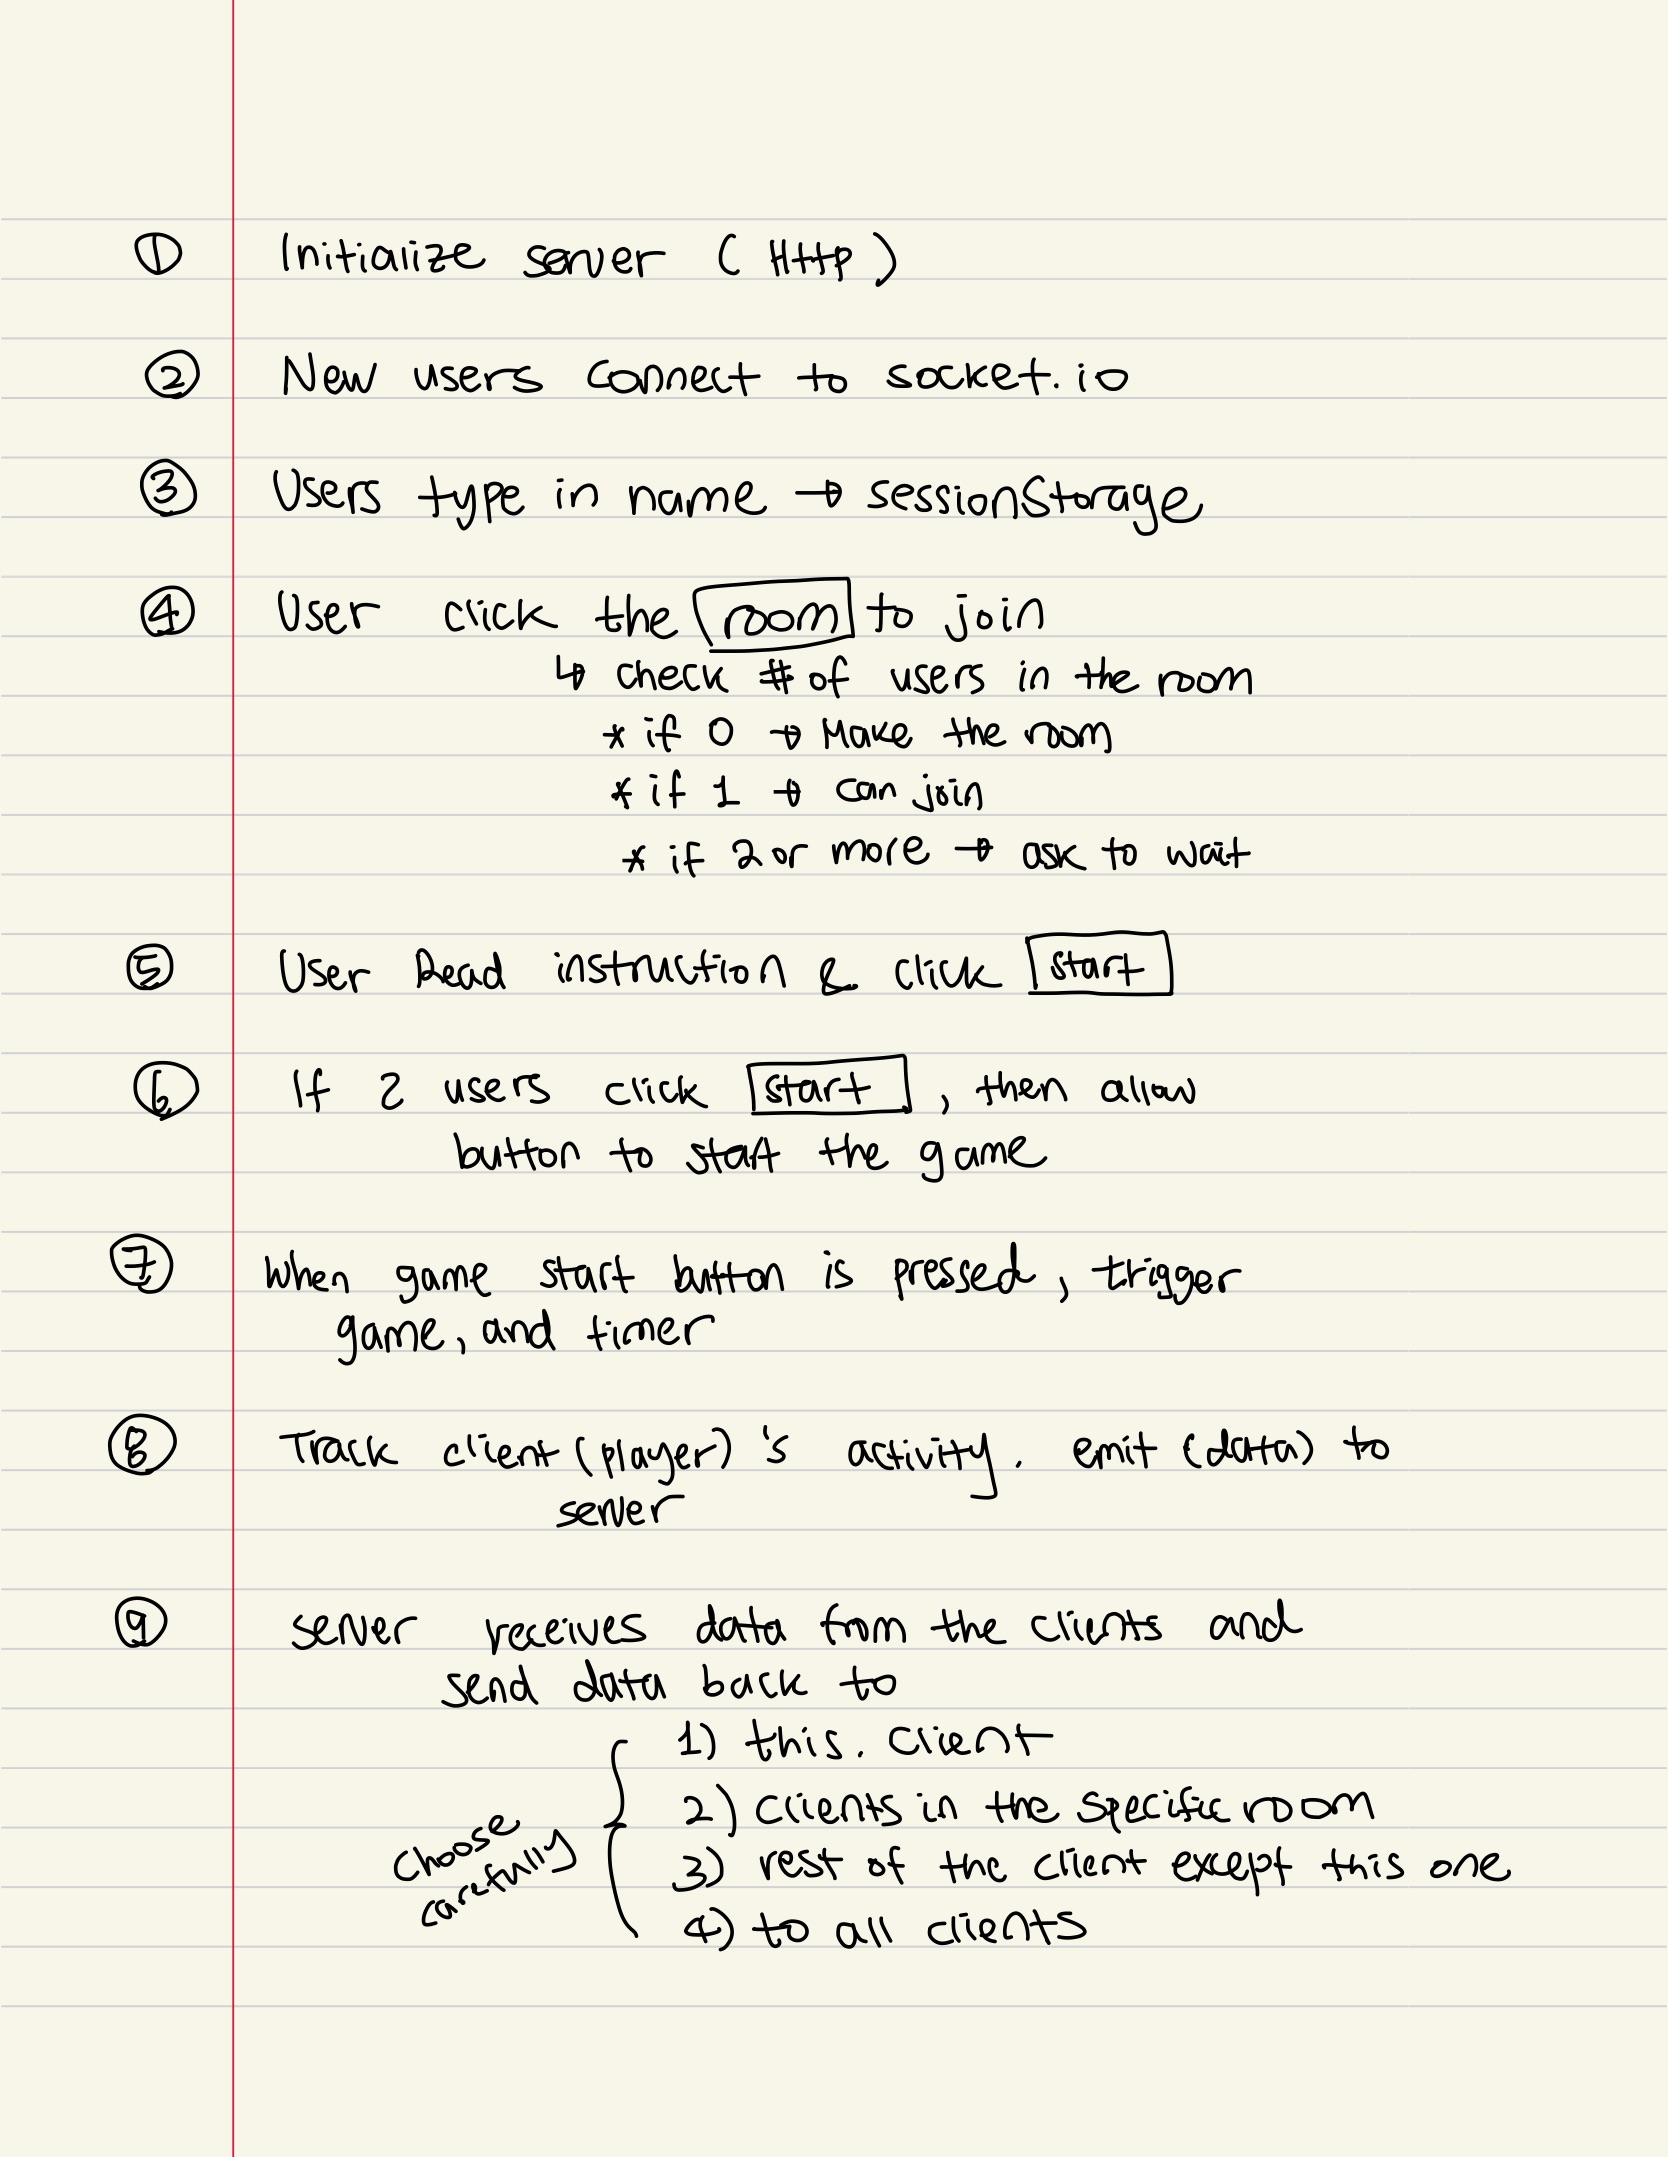 ① Initialize server (Http)
② New users connect to socket.io
③ Users type in name → sessionStorage
④ User click the room to join
↳ check # of users in the room
* if 0 → Make the room
* if 1 → can join
* if 2 or more → ask to wait
⑤ User Read instruction & click start
⑥ If 2 users click start, then allow
button to start the game
⑦ When game start button is pressed, trigger
game, and timer
⑧ Track client (player)'s activity. emit (data) to
server
⑨ server receives data from the clients and
send data back to
1) this. client
2) clients in the specific room
choose
carefully
3) rest of the client except this one
4) to all clients